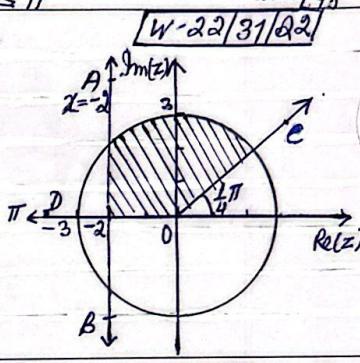 W-22/31/Q2
A
Im(z)
x=-2
3
C
1/4 π
π
D
-3
-2
0
Re(z)
B